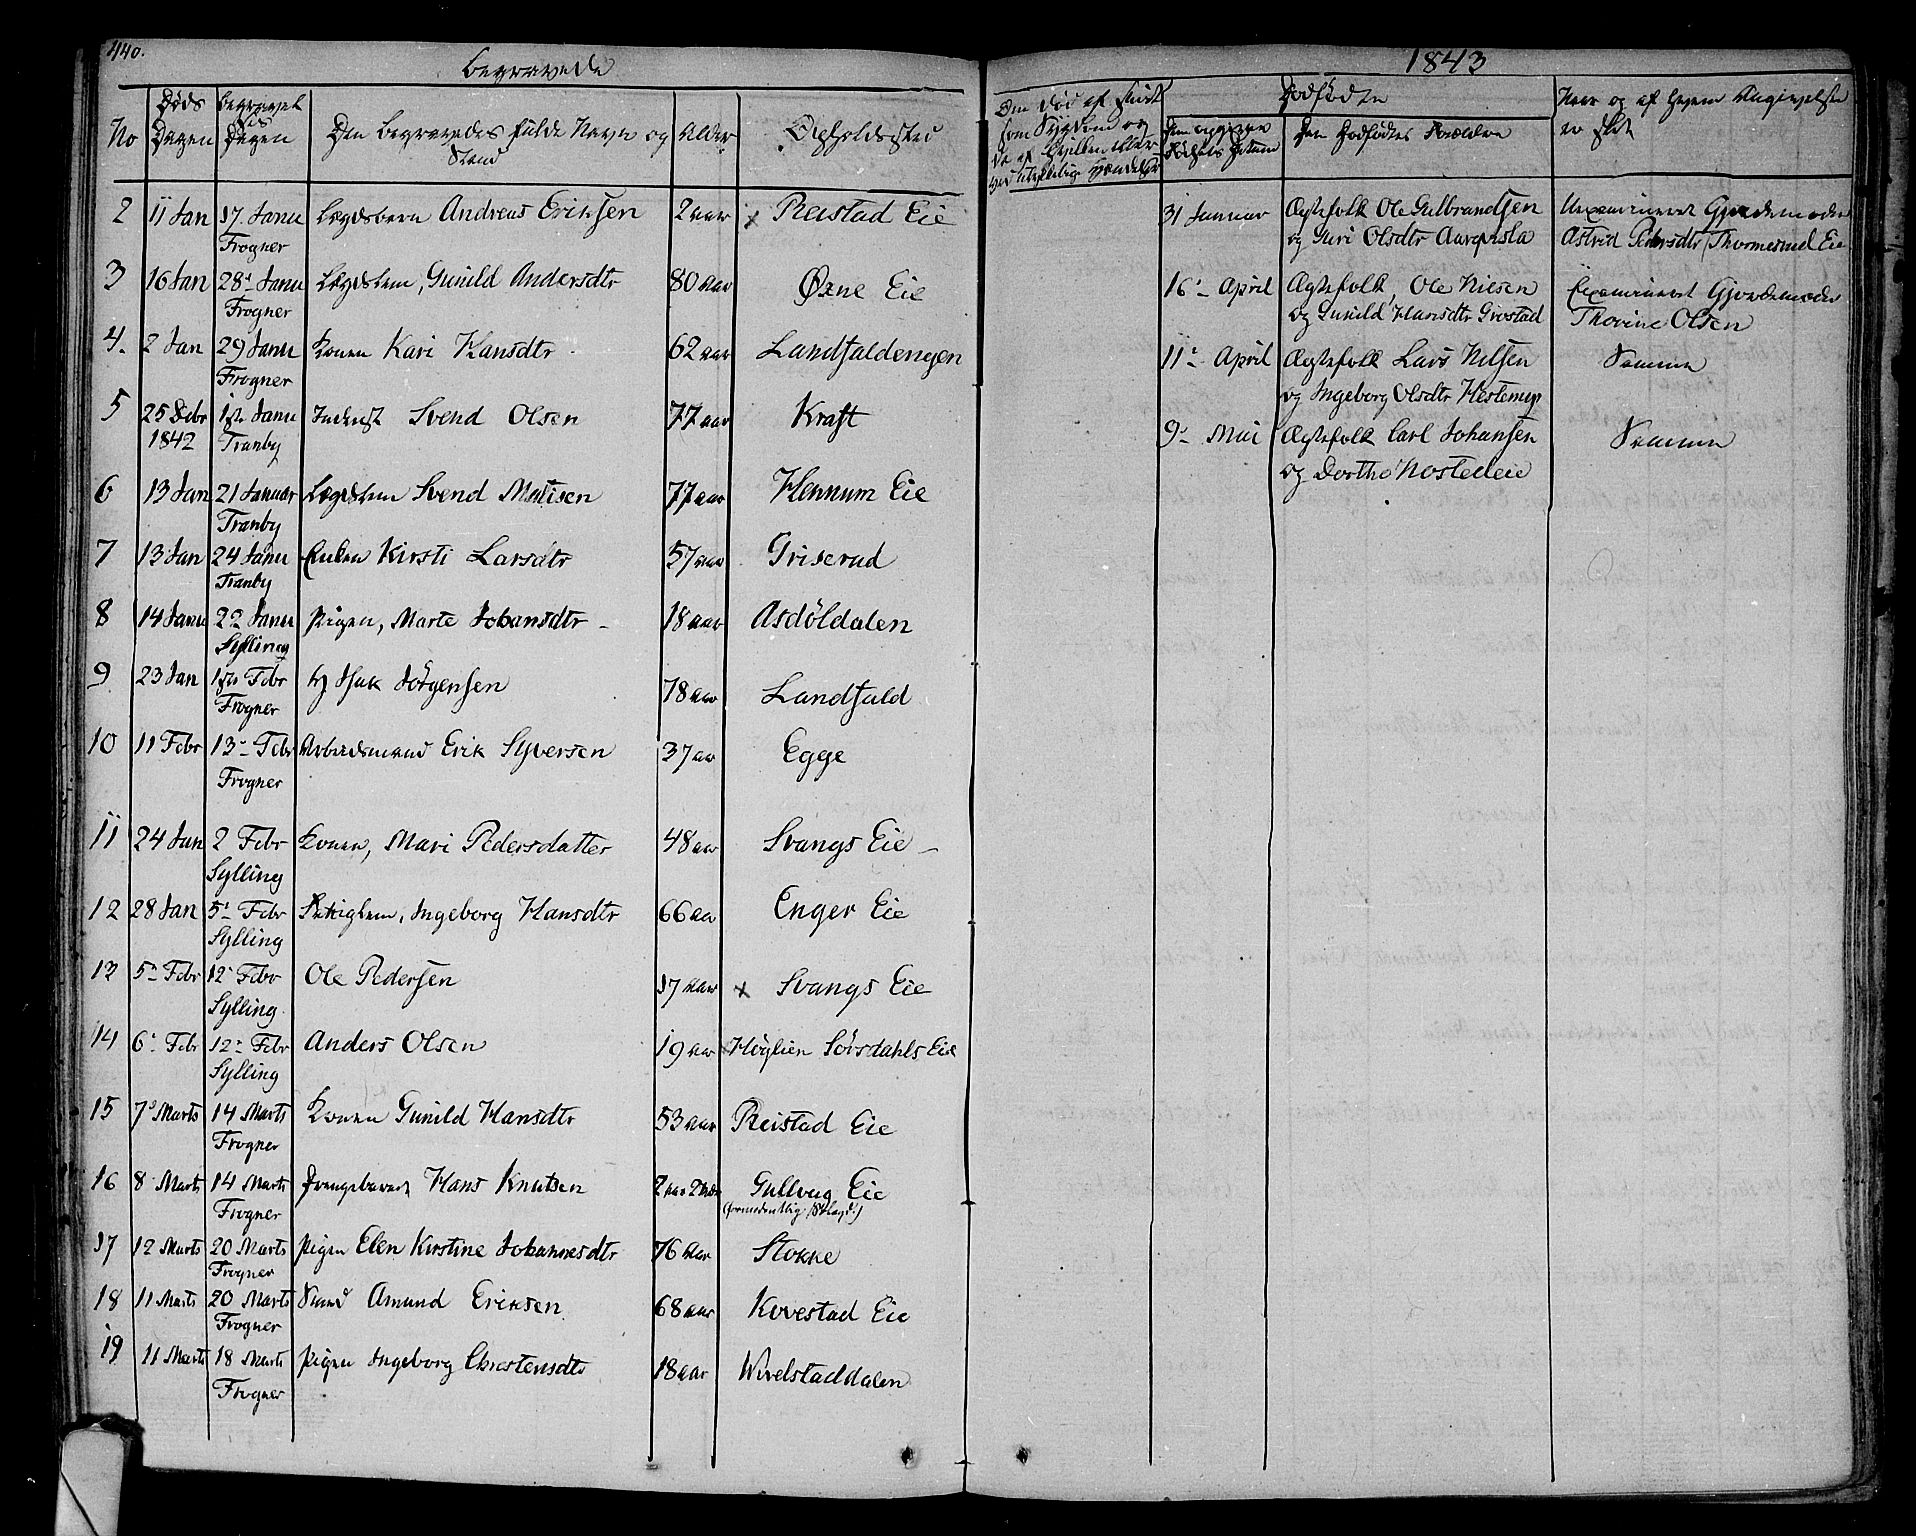 440.
Begravede
No
Døds Dagen
Begravelses Dagen
Den Begravedes fulde Navn og Stand
Alder
Opholdssted
2 11 Jan 17 Janu Lægdsbarn Andreas Eriksen 2 aar x Reistad Eie
Frogner
3 16 Jan 28' Janu Lægdslem, Gunild Andersdtr 80 aar Øxne Eie
Frogner
4. 2 Jan 29 Janu Konen Kari Hansdtr 62 aar Landfaldengen
Frogner
5 25 Debr 1ste Janu Inderst Svend Olsen 77 aar Kraft
1842 Tranby
6 13 Jan 21 Januar Lægdslem Svend Matisen 77 aar Hennum Eie
Tranby
7 13 Jan 24 Janu Enken Kirsti Larsdtr 57 aar Griserud
Tranby
8 14 Janu 22 Janu Pigen, Marte Johansdtr 18 aar Asdöldalen
Sylling
9 23 Jan 1ste Febr Isak Jörgensen 78 aar Landfald
Frogner
10 11 Febr 13- Febr Arbeidsmand Erik Syversen 37 aar Egge
Frogner
11 24 Jan 2 Febr Konen, Mari Pedersdatter 48 aar Svangs Eie -
Sylling
12 28 Jan 5' Febr Fattiglem, Ingeborg Hansdtr 66 aar Enger Eie
Sylling
13 5- Febr 12- Febr Ole Pedersen 17 aar x Svangs Eie
Sylling
14 6- Febr 12- Febr Anders Olsen 19 aar Höglien Sörsdahls Eie
Sylling
15 7' Marts 14 Marts Konen Gunild Hansdtr 53 aar Reistad Eie
Frogner
16 8' Marts 14 Marts Drengebarnet Hans Knutsen 2 aar 2 Mdr Gullaug Eie
Frogner
17 12 Marts 20 Marts Pigen Elen Kirstine Johannesdtr 76 Aar Stokke
Frogner
18 11 Marts 20 Marts Amund Eriksen 68 aar Kovestad Eie
Frogner
19 11 Marts 18 Marts Pigen Ingeborg Christensdtr 18 aar Wivelstaddalen
Frogner
1843
Om død af sidst
som Sygdom og
da af hvilken eller
ved ulykkelig Hændelse
Dødfødte
Den opgivne Fødsels Datum
Den Dødfødtes Forældre
Naar og af hvem Angivelse
er skeet
31 Januar Ægtefolk Ole Gulbrandsen Uexamineret Gjordemoder
og Guri Olsdtr Astrid Pedersdtr Thormesrud Eie
16- April Ægtefolk, Ole Nilsen Examineret Gjordemoder
og Gunild Hansdtr Grostad Thorine Olsen
11- April Ægtefolk Lars Nilsen Samme
og Ingeborg Olsdtr Hestenup
9- Mai Ægtefolk Carl Johansen Samme
og Dorthe Nostedeie